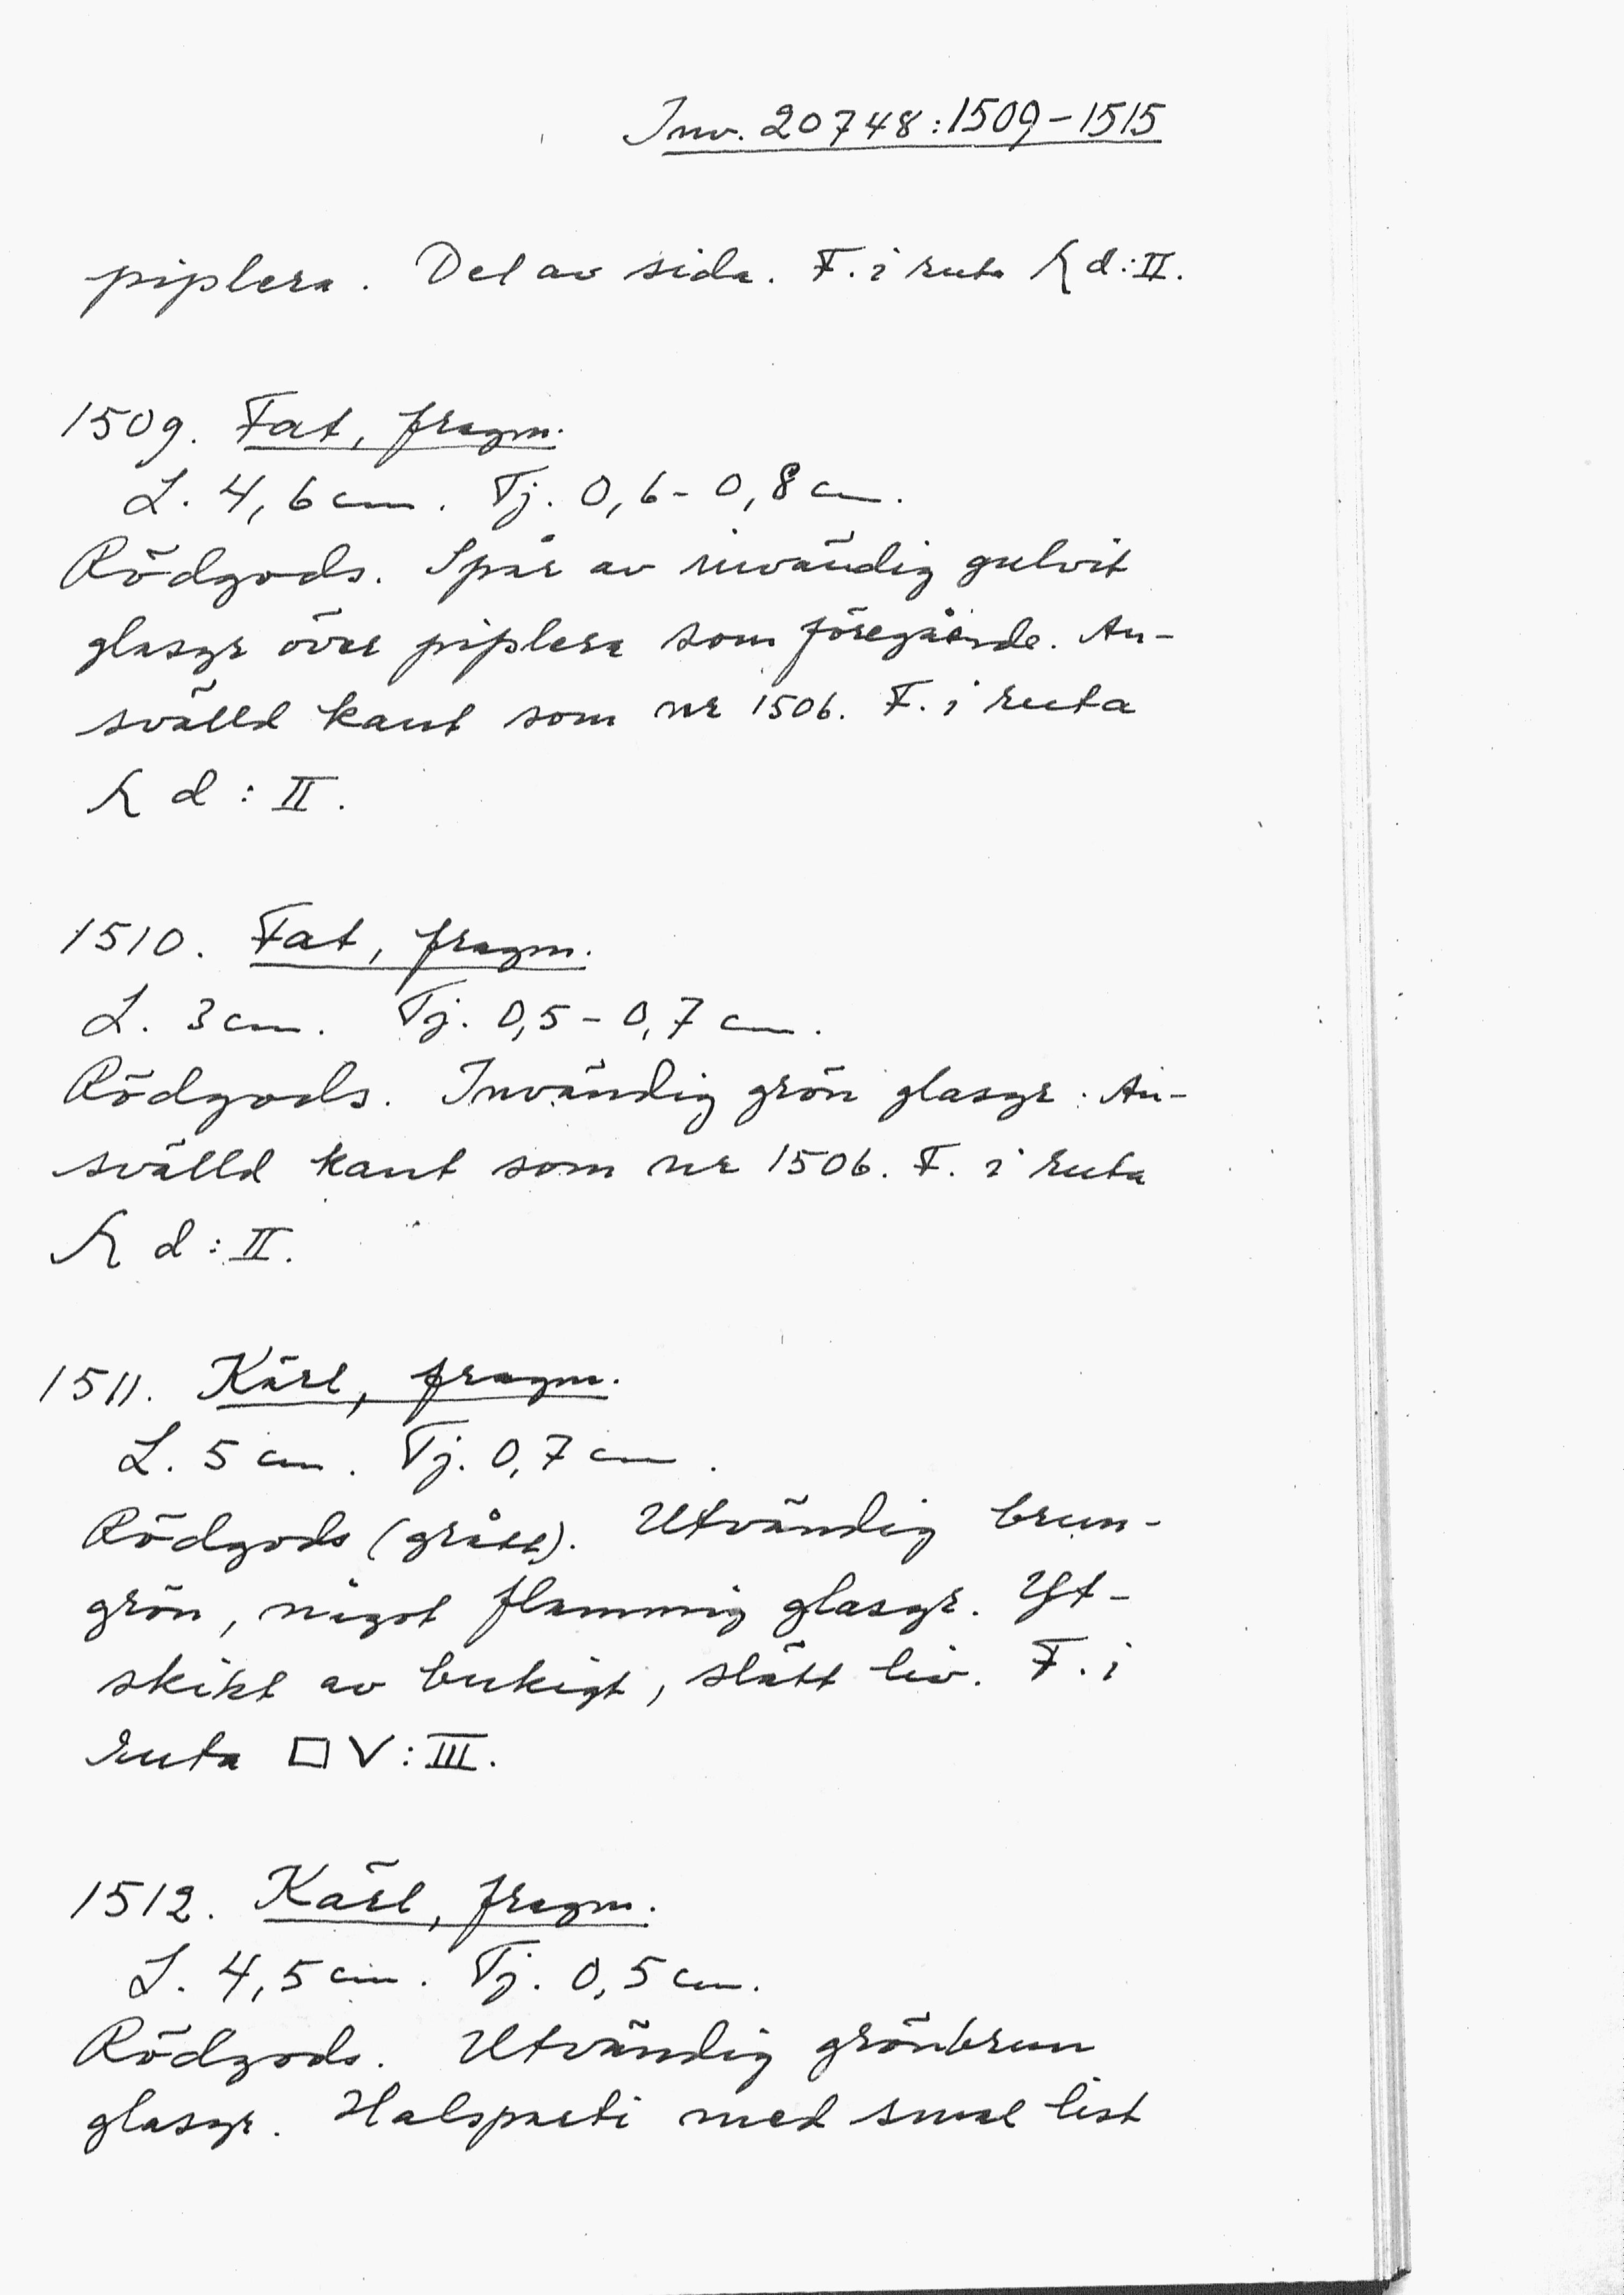 Inv. 20748:1509-1515
piplera. Del av sida. F. i ruta R d:II.
1509. Fat, fragm.
L. 4,6 cm. Tj. 0,6-0,8 cm.
Rödgods. Spår av invändig gulvit
glasyr över piplera som föregående. An-
svälld kant som nr 1506. F. i ruta
R d:II.
1510. Fat, fragm.
L. 3 cm. Tj. 0,5-0,7 cm.
Rödgods. Invändig grön glasyr. An-
svälld kant som nr 1506. F. i ruta
R d:II.
1511. Kärl, fragm.
L. 5 cm. Tj. 0,7 cm.
Rödgods (grått). Utvändig brun-
grön, något flammig glasyr. Yt-
skikt av bukigt, slätt liv. F. i
ruta □ V:III.
1512. Kärl, fragm.
L. 4,5 cm. Tj. 0,5 cm.
Rödgods. Utvändig grönbrun
glasyr. Halsparti med smal list